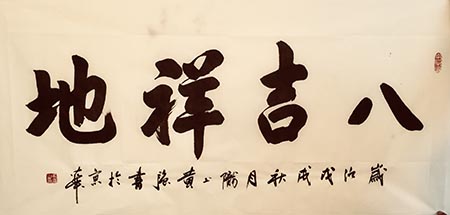 八吉祥地
歲次戊戌秋月上黄書於京華